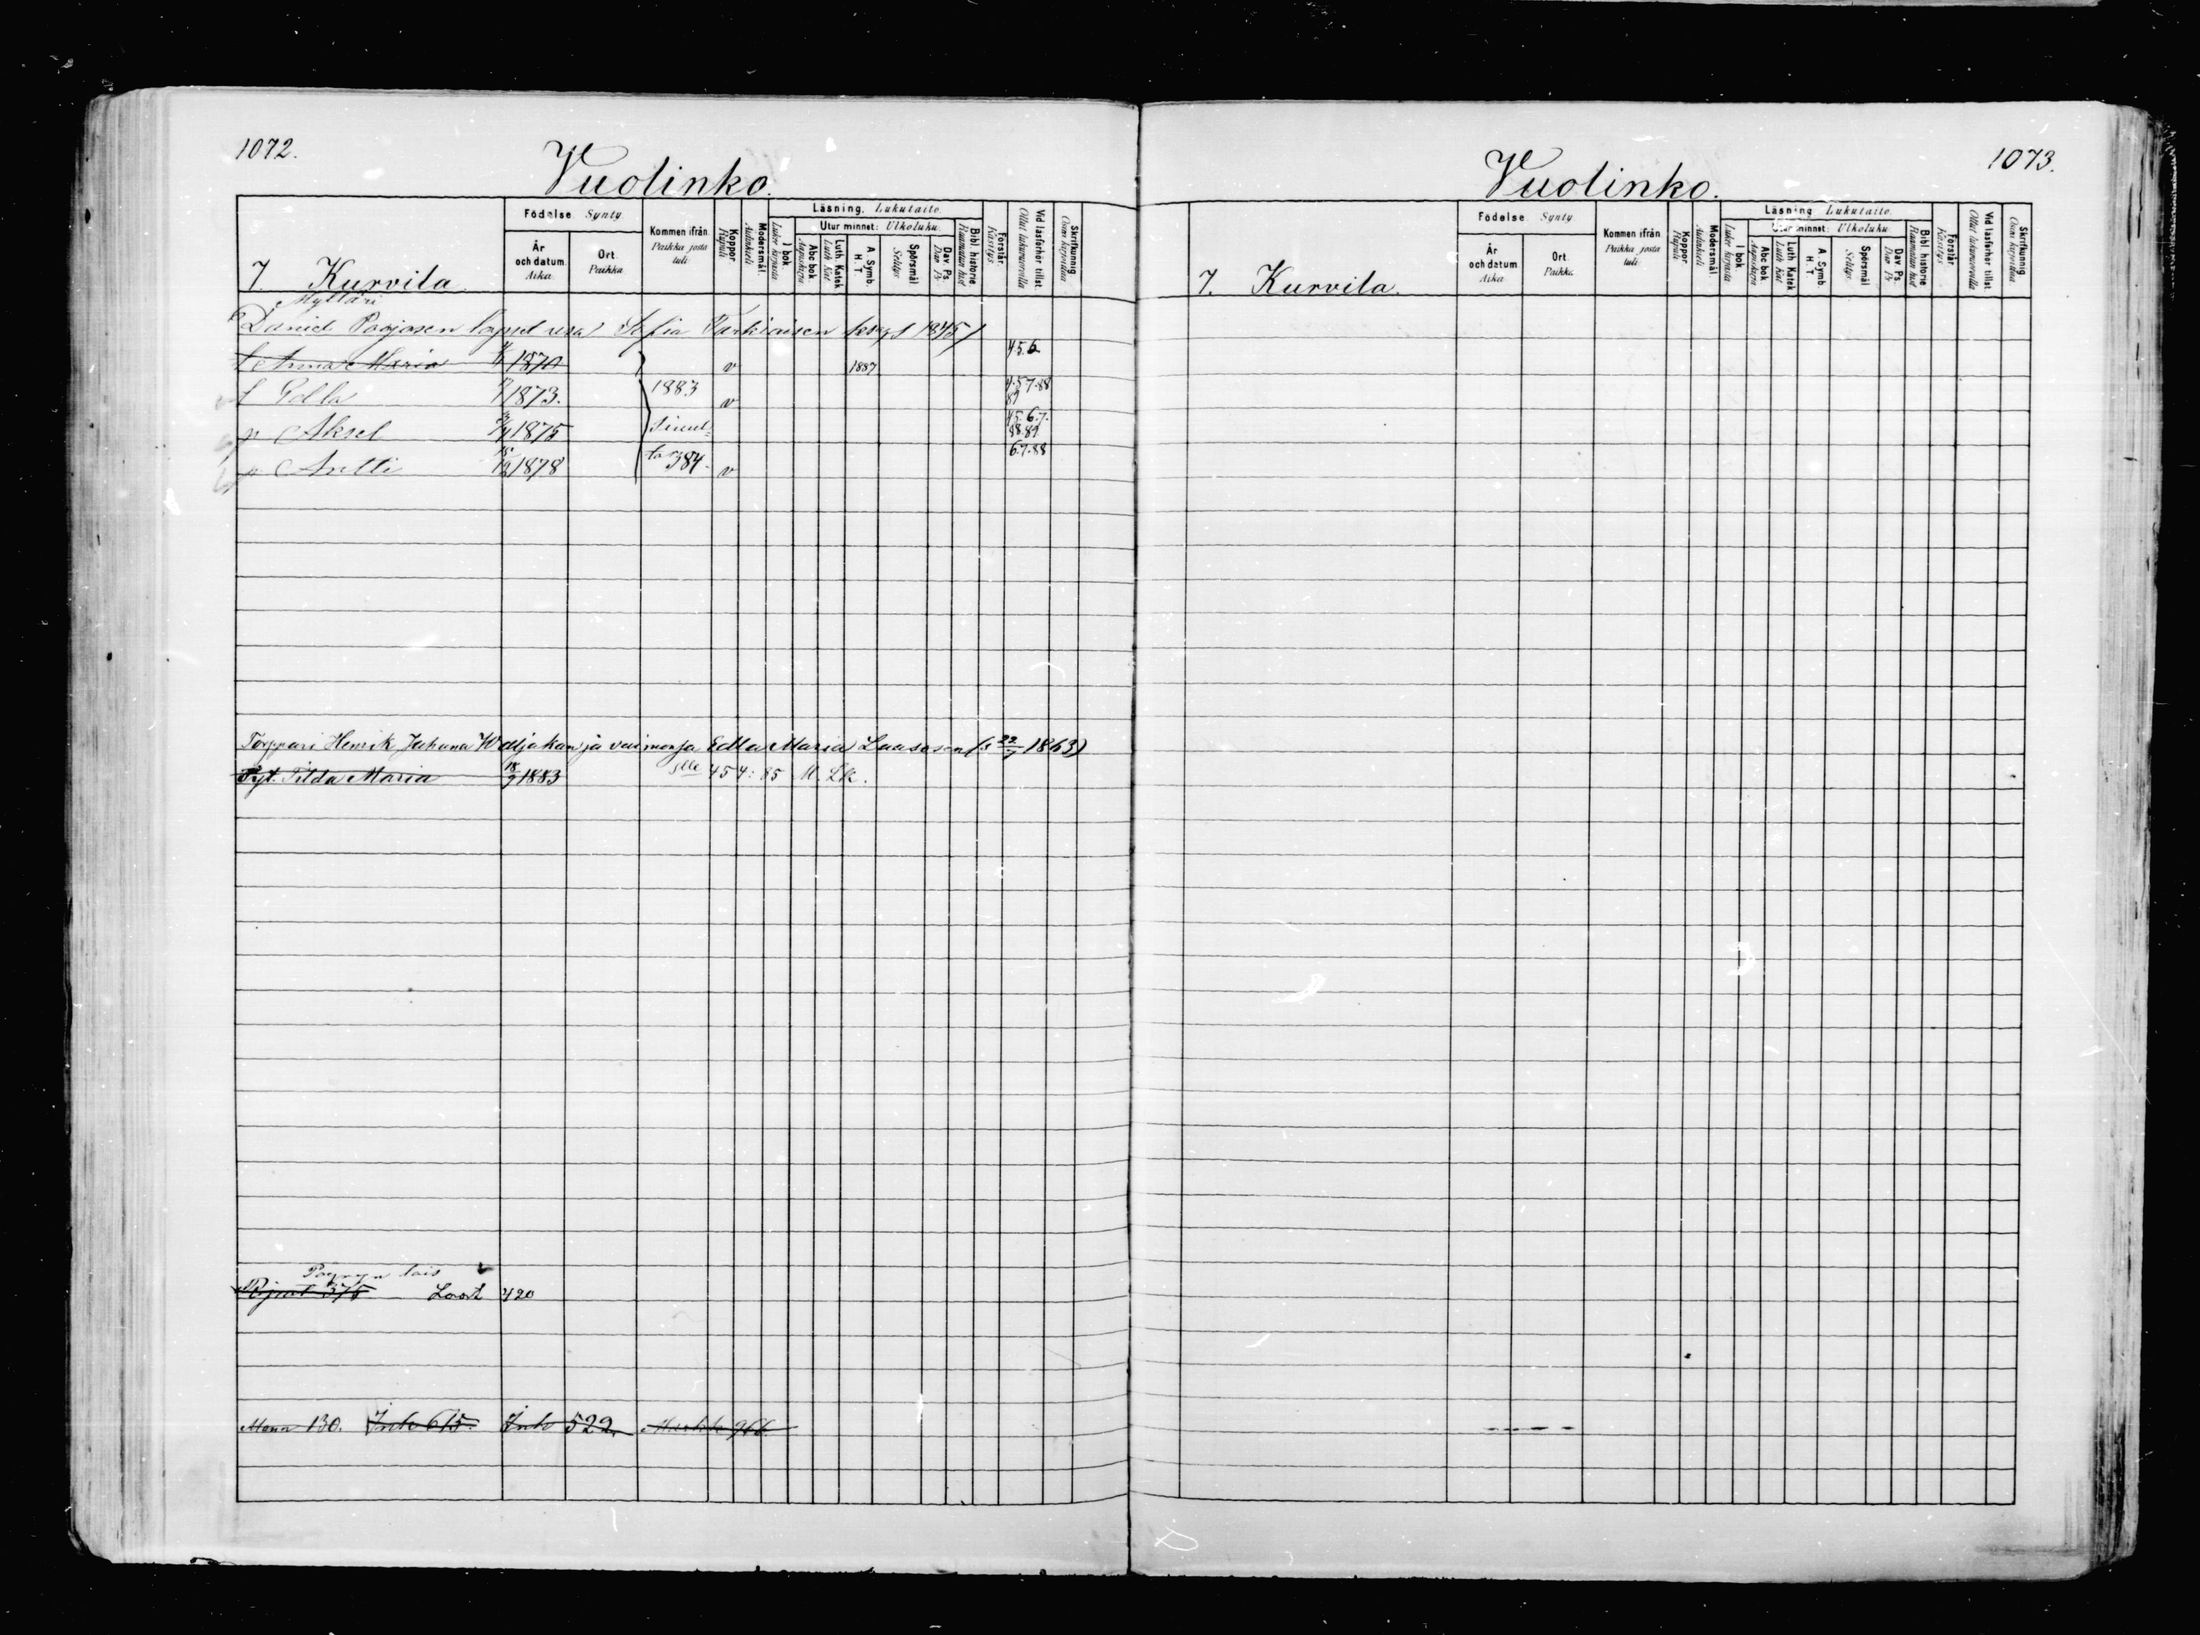 1072.
Vuolinko.
Födelse Synty
År och datum. Aika.
Ort. Paikka
Kommen ifrån. Paikka josta tuli.
Koppor Rupuli
Modersmål. Äidinkieli
Läsning. Lukutaito.
I bok Lukee kirjasta
Utur minnet: Ulkoluku.
Abc bok Aapiskirja
Luth. Katek Luth. Kat.
A. Symb. H. T.
Spörsmål Selitys
Dav. Ps. Dav. Ps.
Bibl. historie Raamatun hist
Förstår. Käsitys
Vid läsförhör tillst. Ollut lukukinkerillä
Skrifkunnig Osaa kirjoittaa
7 Kurvila
Mylläri
Daniel Porjosen lapset Sofia Tarkiaisen kans / 1845 /
t Anna Maria 1870 v 1887 4.5.6
t Edla 1873. 1883 v 4.5.7.88 89
p Aksel 1875 4.5.6.7. 88.89
p Antti 1878 84 v 6.7.88
Torppari Henrik Juhana ja vaimonsa Edla Maria Laasosen (s 22/7 1863)
Tyt. Tilda Maria 18/9 1883 slle 454: 85 M. Lk.
Loort 420
Mann 130. Ink 615. Ink 522. 966
1073.
Vuolinko.
Födelse Synty
År och datum Aika
Ort. Paikka.
Kommen ifrån. Paikka josta tuli
Koppor Rupuli
Modersmål Äidinkieli
Läsning Lukutaito.
I bok Lukee kirjasta
Utur minnet: Ulkoluku
Abc bok Aapiskirja
Luth Katek Luth Kat
A. Symb H. T
Spörsmål Selitys
Dav. Ps. Dav Ps
Bibl. historie Raamatun hist
Förstår Käsitys
Vid läsförhör tillst. Ollut lukukinkerillä
Skrifkunnig Osaa kirjoittaa
7. Kurvila.